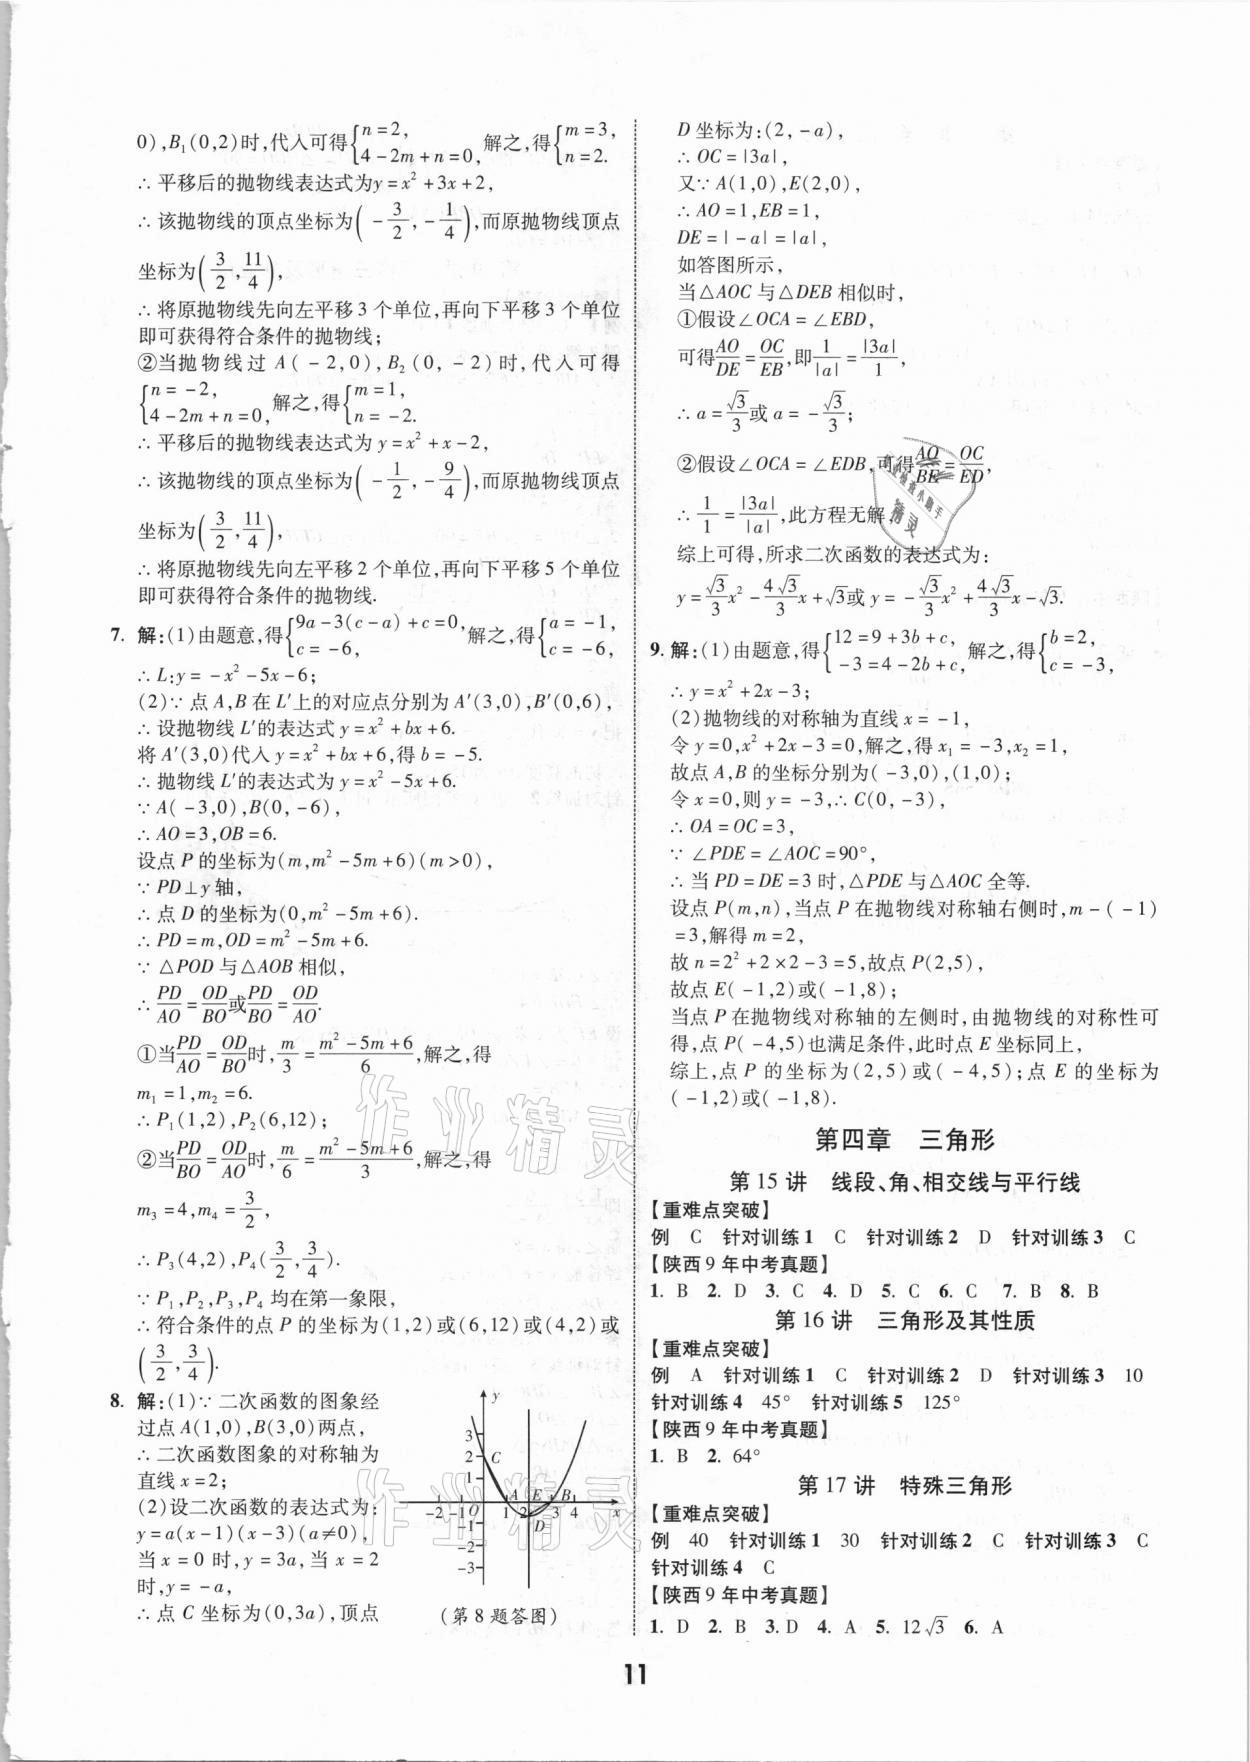 0),B₁(0,2)时,代入可得{n=2, 4-2m+n=0, 解之,得{m=3, n=2.
∴平移后的抛物线表达式为y=x²+3x+2,
∴该抛物线的顶点坐标为(-3/2,-1/4),而原抛物线顶点
坐标为(3/2,11/4),
∴将原抛物线先向左平移3个单位,再向下平移3个单位
即可获得符合条件的抛物线;
②当抛物线过A(-2,0),B₂(0,-2)时,代入可得
{n=-2, 4-2m+n=0, 解之,得{m=1, n=-2.
∴平移后的抛物线表达式为y=x²+x-2,
∴该抛物线的顶点坐标为(-1/2,-9/4),而原抛物线顶点
坐标为(3/2,11/4),
∴将原抛物线先向左平移2个单位,再向下平移5个单位
即可获得符合条件的抛物线.
7. 解:(1)由题意,得{9a-3(c-a)+c=0, c=-6, 解之,得{a=-1, c=-6,
∴L:y=-x²-5x-6;
(2)∵点A,B在L′上的对应点分别为A′(3,0),B′(0,6),
∴设抛物线L′的表达式y=x²+bx+6.
将A′(3,0)代入y=x²+bx+6,得b=-5.
∴抛物线L′的表达式为y=x²-5x+6.
∵A(-3,0),B(0,-6),
∴AO=3,OB=6.
设点P的坐标为(m,m²-5m+6)(m>0),
∵PD⊥y轴,
∴点D的坐标为(0,m²-5m+6).
∴PD=m,OD=m²-5m+6.
∵△POD与△AOB相似,
∴PD/AO=OD/BO或PD/BO=OD/AO.
①当PD/AO=OD/BO时,m/3=(m²-5m+6)/6,解之,得
m₁=1,m₂=6.
∴P₁(1,2),P₂(6,12);
②当PD/BO=OD/AO时,m/6=(m²-5m+6)/3,解之,得
m₃=4,m₄=3/2,
∴P₃(4,2),P₄(3/2,3/4).
∵P₁,P₂,P₃,P₄均在第一象限,
∴符合条件的点P的坐标为(1,2)或(6,12)或(4,2)或
(3/2,3/4).
8. 解:(1)∵二次函数的图象经
过点A(1,0),B(3,0)两点,
∴二次函数图象的对称轴为
直线x=2;
(2)设二次函数的表达式为:
y=a(x-1)(x-3)(a≠0),
当x=0时,y=3a,当x=2
时,y=-a,
∴点C坐标为(0,3a),顶点
y
3
2
C
1
A E B
-2 -1 O 1 2 3 4 x
-1
D
-2
-3
(第8题答图)
D坐标为:(2,-a),
∴OC=|3a|,
又∵A(1,0),E(2,0),
∴AO=1,EB=1,
DE=|-a|=|a|,
如答图所示,
当△AOC与△DEB相似时,
①假设∠OCA=∠EBD,
可得AO/DE=OC/EB,即1/|a|=|3a|/1,
∴a=√3/3或a=-√3/3;
②假设∠OCA=∠EDB,可得AO/BE=OC/ED,
∴1/1=|3a|/|a|,此方程无解,
综上可得,所求二次函数的表达式为:
y=√3/3x²-4√3/3x+√3或y=-√3/3x²+4√3/3x-√3.
9. 解:(1)由题意,得{12=9+3b+c, -3=4-2b+c, 解之,得{b=2, c=-3,
∴y=x²+2x-3;
(2)抛物线的对称轴为直线x=-1,
令y=0,x²+2x-3=0,解之,得x₁=-3,x₂=1,
故点A,B的坐标分别为(-3,0),(1,0);
令x=0,则y=-3,∴C(0,-3),
∴OA=OC=3,
∵∠PDE=∠AOC=90°,
∴当PD=DE=3时,△PDE与△AOC全等.
设点P(m,n),当点P在抛物线对称轴右侧时,m-(-1)
=3,解得m=2,
故n=2²+2×2-3=5,故点P(2,5),
故点E(-1,2)或(-1,8);
当点P在抛物线对称轴的左侧时,由抛物线的对称性可
得,点P(-4,5)也满足条件,此时点E坐标同上,
综上,点P的坐标为(2,5)或(-4,5);点E的坐标为
(-1,2)或(-1,8).
第四章 三角形
第15讲 线段、角、相交线与平行线
【重难点突破】
例 C 针对训练1 C 针对训练2 D 针对训练3 C
【陕西9年中考真题】
1. B 2. D 3. C 4. D 5. C 6. C 7. B 8. B
第16讲 三角形及其性质
【重难点突破】
例 A 针对训练1 C 针对训练2 D 针对训练3 10
针对训练4 45° 针对训练5 125°
【陕西9年中考真题】
1. B 2. 64°
第17讲 特殊三角形
【重难点突破】
例 40 针对训练1 30 针对训练2 C 针对训练3 C
针对训练4 C
【陕西9年中考真题】
1. D 2. B 3. D 4. A 5. 12√3 6. A
11
作业精灵
作业精灵